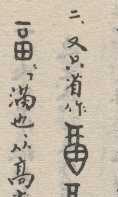 二、又只省作
畐：滿也、从高